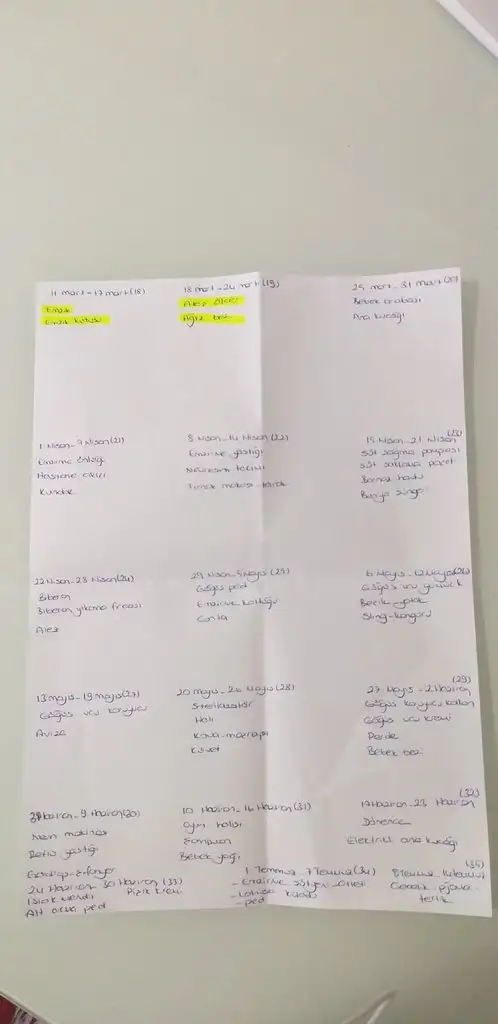 11 mart-17 mart(18)
Emzik
Emzik kutusu
18 mart-24 mart(19)
Ateş ölçer
Ağız bezi
25 mart-31 mart(20)
Bebek arabası
Ana kucağı
1 Nisan-7 Nisan(21)
Emzirme önlüğü
Hastane çıkışı
Kundak
8 Nisan-14 Nisan(22)
Emzirme yastığı
Nevresim takımı
Tırnak makası-tarak
15 Nisan-21 Nisan
(23)
Süt sağma pompası
Süt saklama poşet
havlu
Banyo süngeri
22 Nisan-28 Nisan(24)
Biberon
Biberon yıkama fırçası
Alez
29 Nisan-5 Mayıs(25)
Göğüs ped
Emzirme koltuğu
Çanta
6 Mayıs-12 Mayıs(26)
Göğüs ucu
Beşik yatak
Sling-kanguru
13 mayıs-19 mayıs(27)
Göğüs ucu koruyucu
Avize
20 mayıs-26 Mayıs(28)
Sterilizatör
Halı
Kova-maşrapa
Küvet
(29)
27 Mayıs-2 Haziran
Göğüs koruyucu kalkan
Göğüs ucu kremi
Perde
Bebek bezi
3 Haziran-9 Haziran(30)
Nem makinası
yastığı
10 Haziran-16 Haziran(31)
Oyun halısı
Şampuan
Bebek yağı
(32)
17 Haziran-23 Haziran
Dönence
Elektrikli ana kucağı
24 Haziran-30 Haziran(33)
Pişik kremi
Islak mendil
Alt açma ped
1 Temmuz-7 Temmuz(34)
-Emzirme sütyen-atleti
-Lohusa külodu
-ped
(35)
8 Temmuz-14 Temmuz
Gecelik-pijama-
terlik